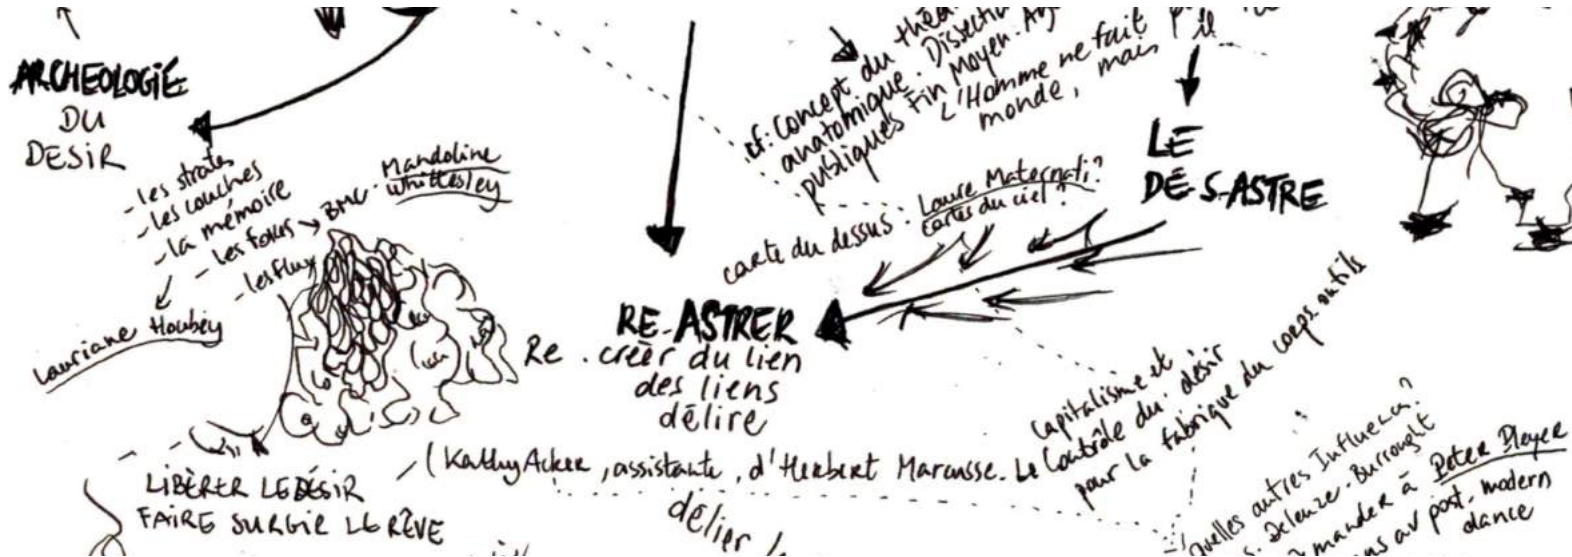 ARCHEOLOGIE
DU
DESIR
- les strates
- les couches
- la mémoire
- les forces → BMC.
- les flux
Mandoline
Whittesley
Lauriane Houbey
LIBÈRER LE DÉSIR
FAIRE SURGIR LE RÊVE
cf: Concept du
anatomique. Dissection
publiques Fin Moyen-Age
L'Homme ne fait
monde, mais
il
LE
DÉ-S-ASTRE
carte du dessus.
Laure Maternati?
cartes du ciel?
RE-ASTRER
Re.créer du lien
des liens
délire
(Kathy Acker, assistante, d'Herbert Marcusse. Le Contrôle du désir
Capitalisme et
pour la fabrique du corps outils
délier
Quelles autres Influences?
Deleuze. Burrought
mander à Peter Pleyer
post.modern
dance